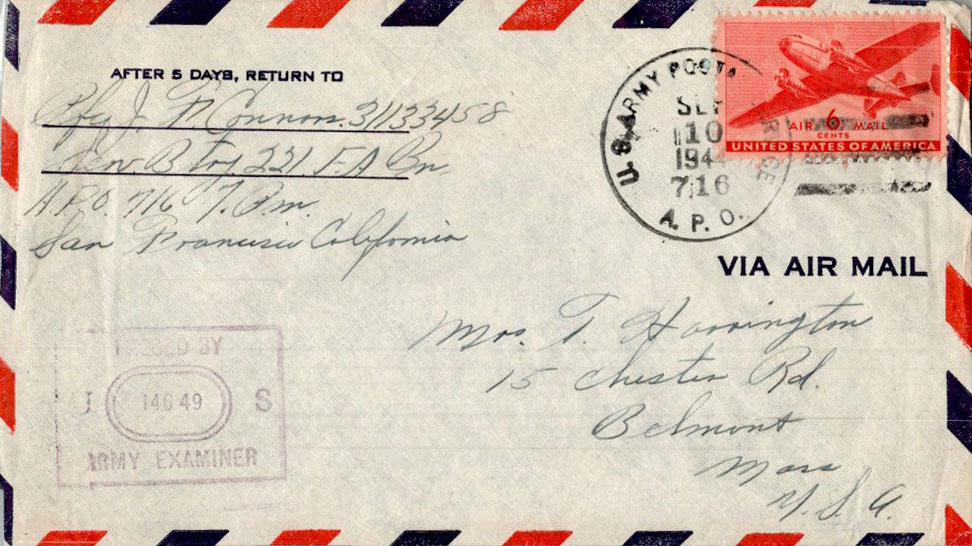 AFTER 5 DAYS, RETURN TO
Pfc J. F. Connors 31133458
Serv. Btry 221 F.A Bn
A.P.O. 716 % P.m.
San Francisco California
U.S. ARMY POSTAL
SEP
10
1944
716
A. P. O.
6
AIR MAIL
CENTS
UNITED STATES OF AMERICA
VIA AIR MAIL
Mrs. T. Harrington
15 Chester Rd.
Belmont
Mass
U. S. A.
PASSED BY
U 14649 S
ARMY EXAMINER